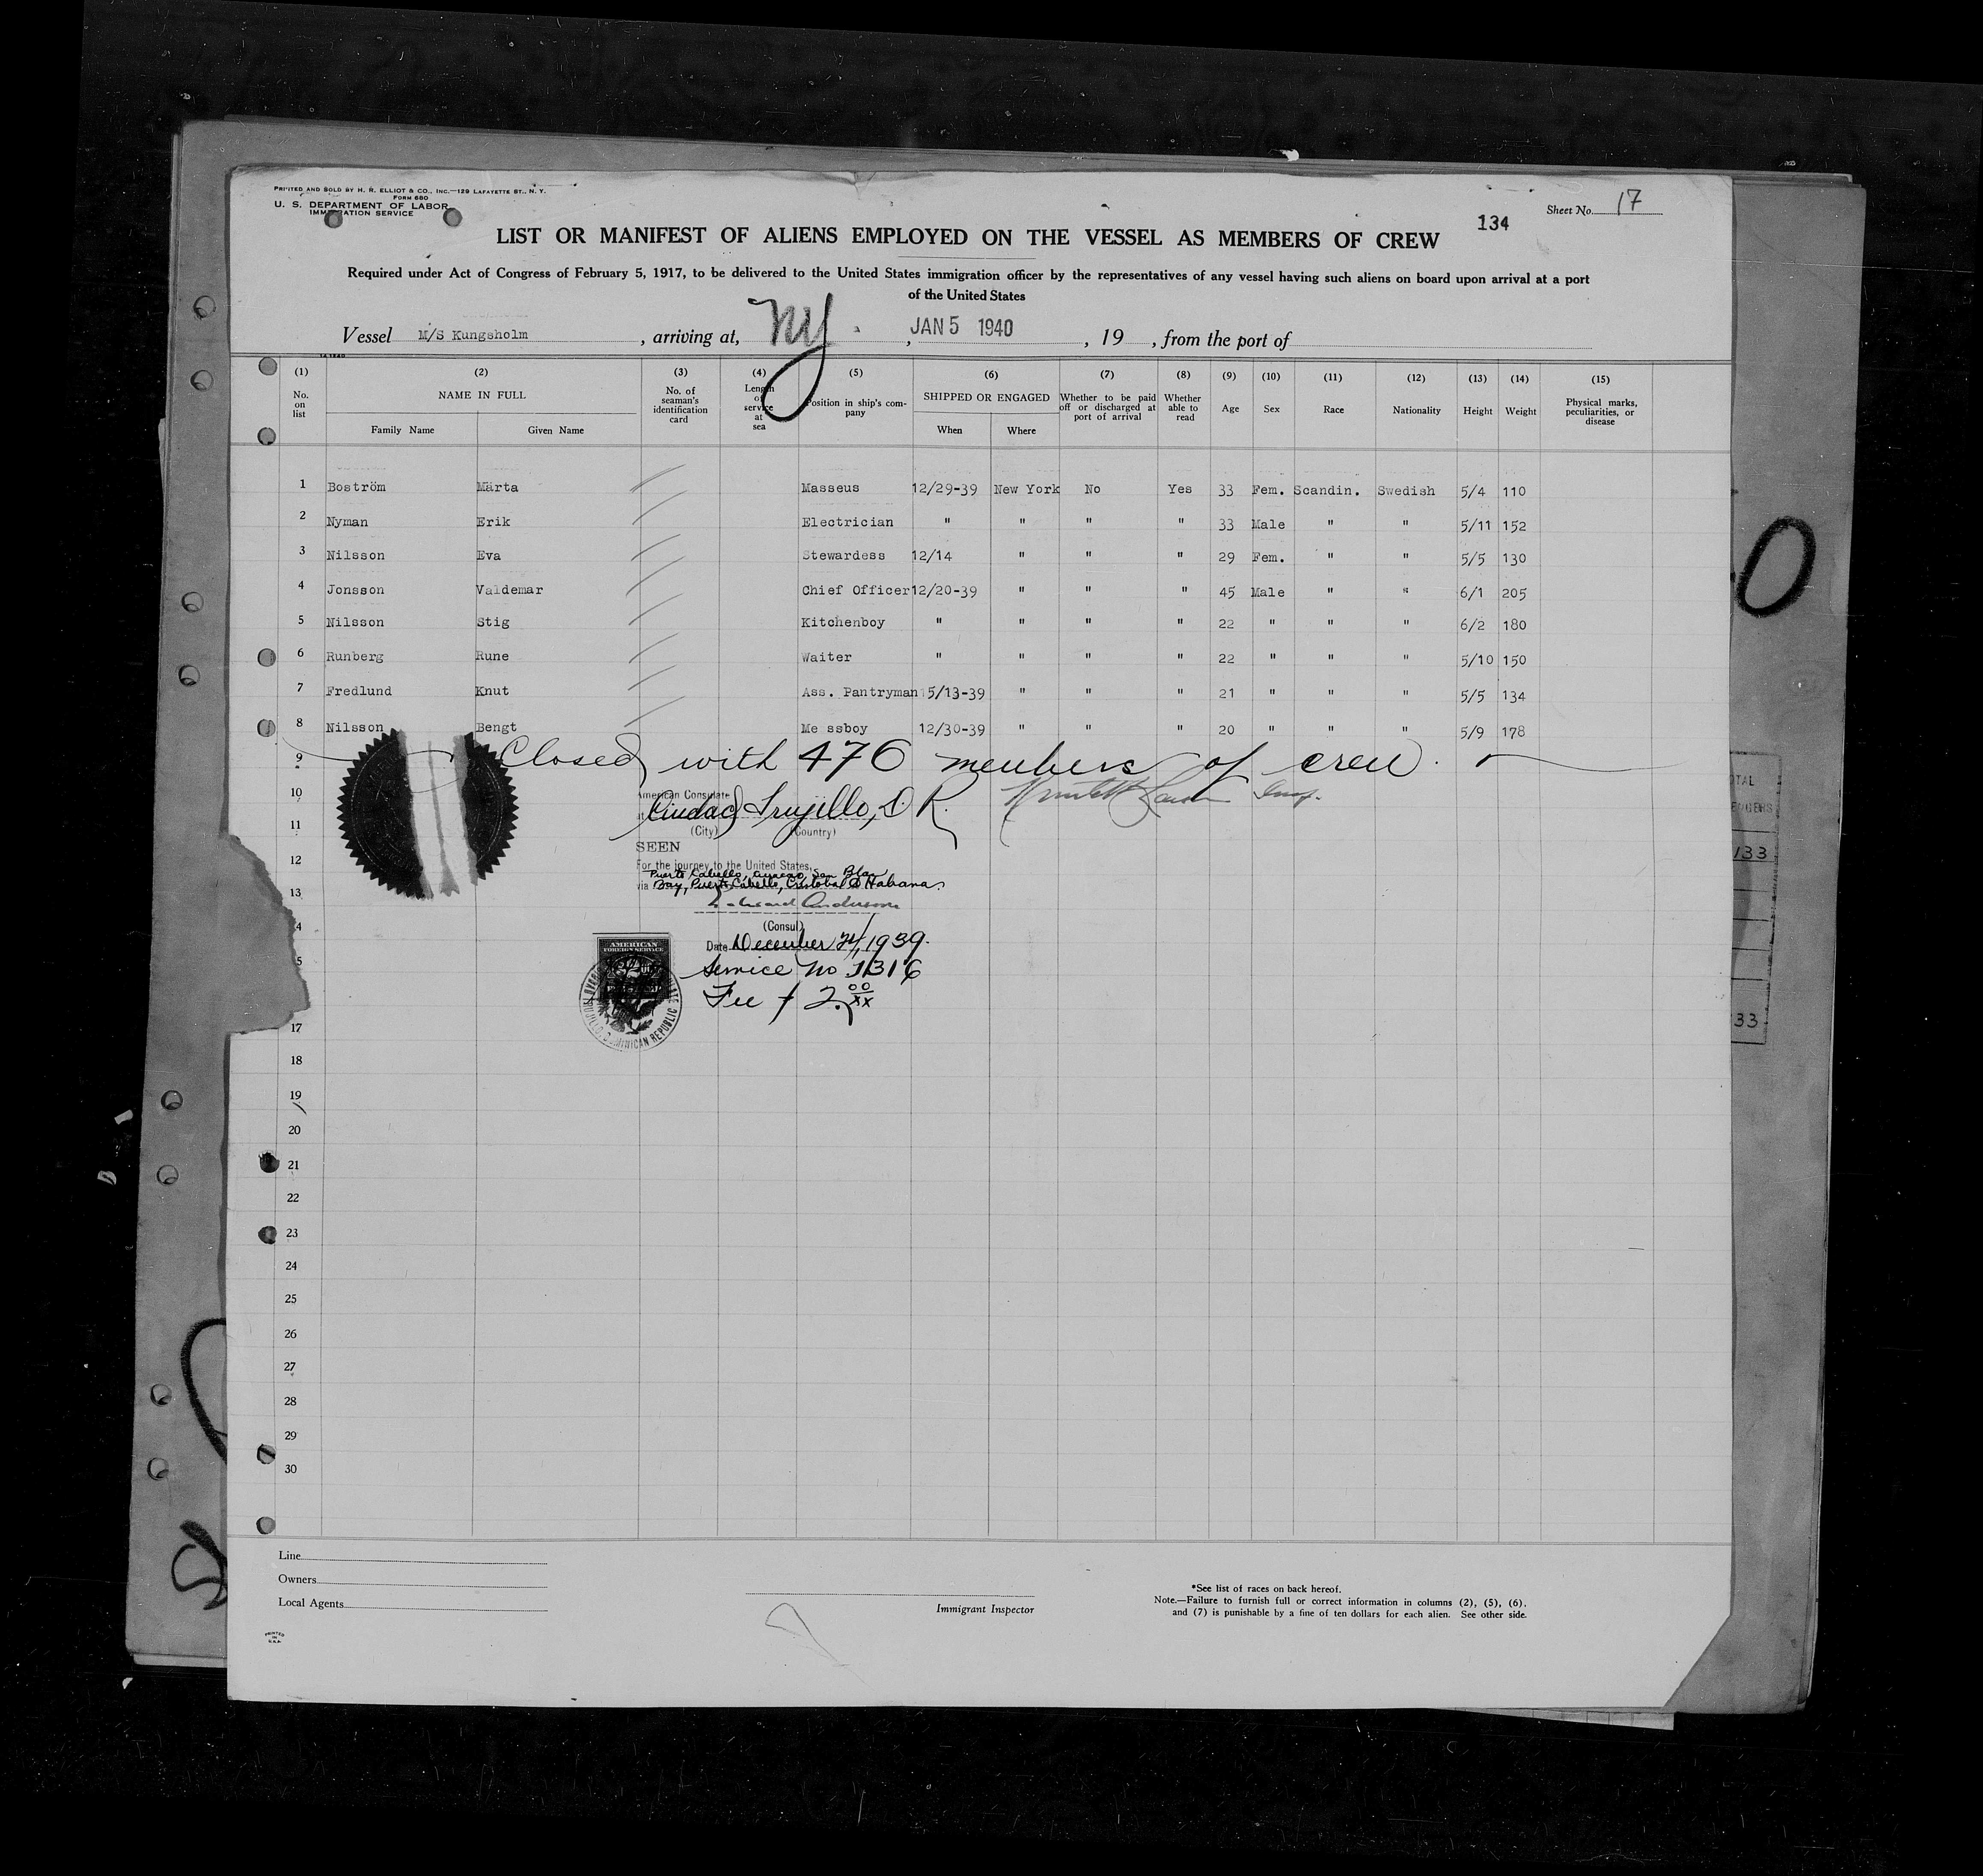 PRINTED AND SOLD BY H. R. ELLIOT & CO., INC.—129 LAFAYETTE ST., N. Y.
FORM 680
U. S. DEPARTMENT OF LABOR
IMMIGRATION SERVICE
Sheet No. 17
134
LIST OR MANIFEST OF ALIENS EMPLOYED ON THE VESSEL AS MEMBERS OF CREW
Required under Act of Congress of February 5, 1917, to be delivered to the United States immigration officer by the representatives of any vessel having such aliens on board upon arrival at a port
of the United States
Vessel M/S Kungsholm , arriving at, NY. , JAN 5 1940 , 19 , from the port of
(1) (2) (3) (4) (5) (6) (7) (8) (9) (10) (11) (12) (13) (14) (15)
No. on list NAME IN FULL Family Name Given Name No. of seaman's identification card Length of service at sea Position in ship's company SHIPPED OR ENGAGED When Where Whether to be paid off or discharged at port of arrival Whether able to read Age Sex Race Nationality Height Weight Physical marks, peculiarities, or disease
1 Boström Märta Masseus 12/29-39 New York No Yes 33 Fem. Scandin. Swedish 5/4 110
2 Nyman Erik Electrician " " " " 33 Male " " 5/11 152
3 Nilsson Eva Stewardess 12/14 " " " 29 Fem. " " 5/5 130
4 Jonsson Valdemar Chief Officer 12/20-39 " " " 45 Male " " 6/1 205
5 Nilsson Stig Kitchenboy " " " " 22 " " " 6/2 180
6 Runberg Rune Waiter " " " " 22 " " " 5/10 150
7 Fredlund Knut Ass. Pantryman 5/13-39 " " " 21 " " " 5/5 134
8 Nilsson Bengt Me ssboy 12/30-39 " " " 20 " " " 5/9 178
9 Closed with 476 members of crew.
10 American Consulate Insp.
at Ciudad Trujillo, D. R.
11 (City) (Country)
SEEN
12 For the journey to the United States,
Puerto Cabello, Curacao, San Blas
13 via Bay, Puerto Cabello, Cristobal & Habana.
Edward Anderson
4 (Consul)
AMERICAN
FOREIGN SERVICE
Date December 24, 1939.
5 Service No 1316
Fee $ 2.00/xx
DOMINICAN REPUBLIC
17
18
19
20
21
22
23
24
25
26
27
28
29
30
Line
Owners
Local Agents
Immigrant Inspector
*See list of races on back hereof.
Note.—Failure to furnish full or correct information in columns (2), (5), (6).
and (7) is punishable by a fine of ten dollars for each alien. See other side.
PRINTED
IN
U.S.A.
133
33